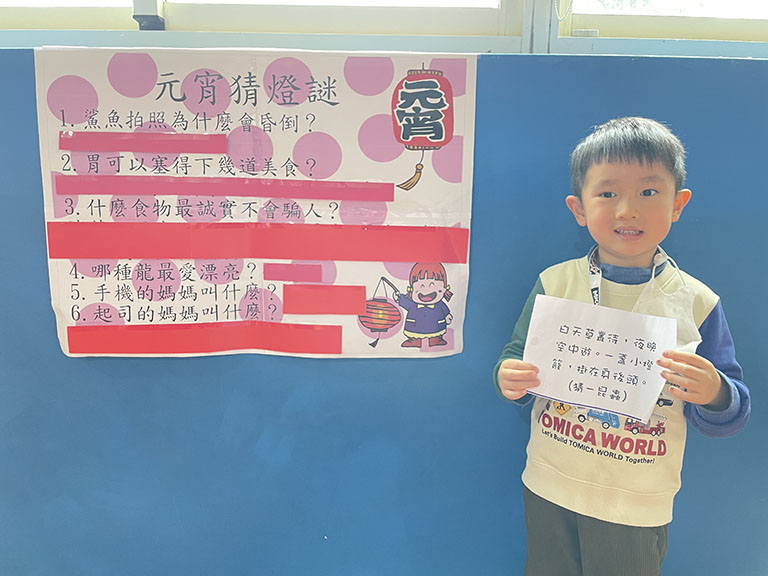 元宵猜燈謎
元宵
1. 鯊魚拍照為什麼會昏倒？
2. 胃可以塞得下幾道美食？
3. 什麼食物最誠實不會騙人？
4. 哪種龍最愛漂亮？
5. 手機的媽媽叫什麼？
6. 起司的媽媽叫什麼？
白天草裏待，夜晚
空中遊。一盞小燈
籠，掛在身後頭。
(猜一昆蟲)
TOMICA WORLD
Let's Build TOMICA WORLD Together!